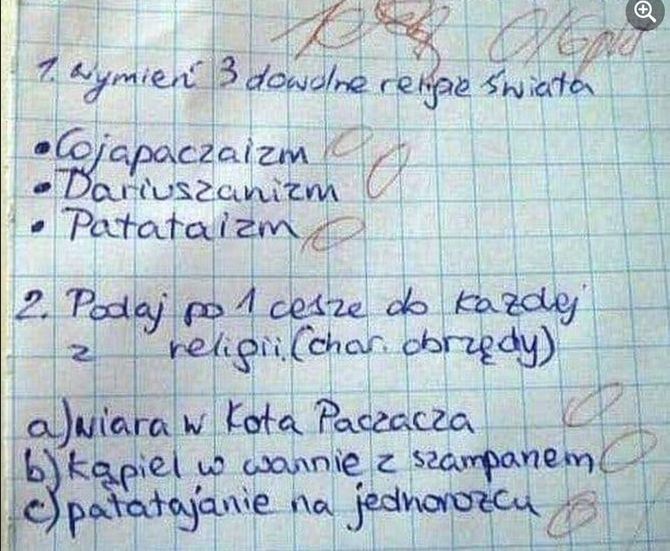 0/6 pkt
1. Wymień 3 dowolne religie świata
• Cojapaczaizm 0
• Dariuszanizm 0
• Patataizm 0
2. Podaj po 1 cesze do każdej
z religii. (char. obrzędy)
a) wiara w Kota Paczacza 0
b) kąpiel w wannie z szampanem 0
c) patatajanie na jednorożcu 0